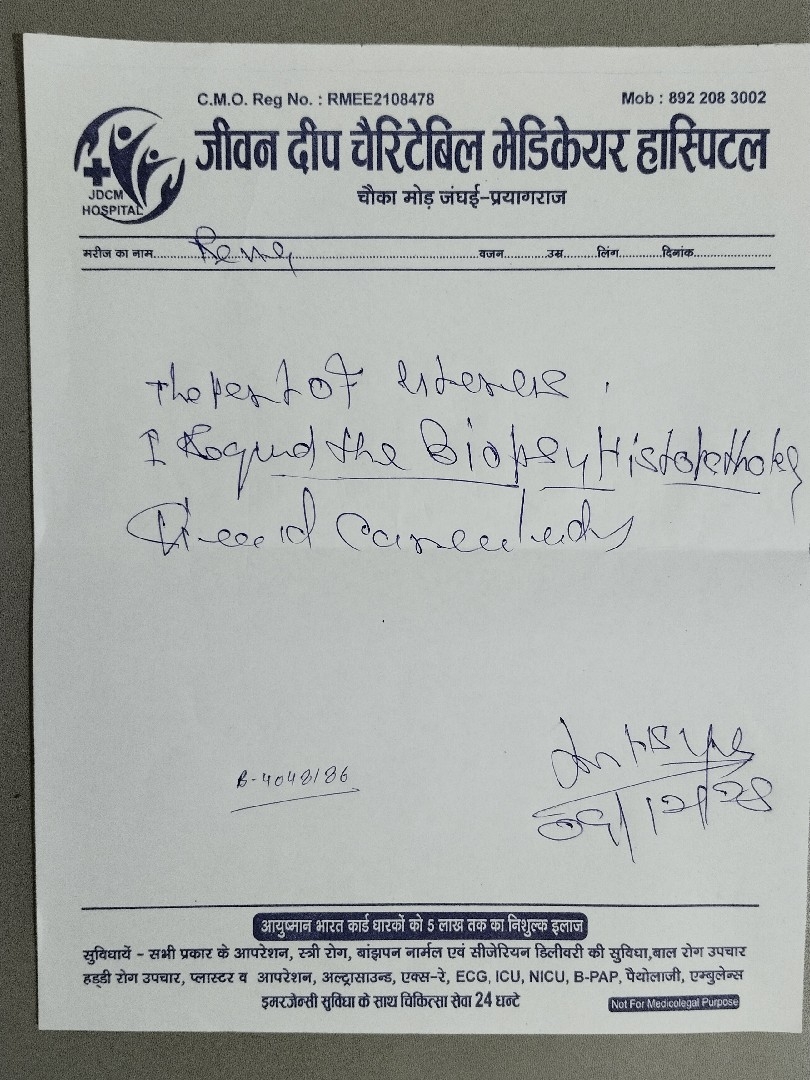 C.M.O. Reg No. : RMEE2108478
Mob : 892 208 3002
जीवन दीप चैरिटेबिल मेडिकेयर हास्पिटल
JDCM
HOSPITAL
चौका मोड़ जंघई-प्रयागराज
मरीज का नाम.......... वजन.......... उम्र.......... लिंग.......... दिनांक..........
the part of uterus.
I Requd the Biopsy Histopathology
B-4048/86
आयुष्मान भारत कार्ड धारकों को 5 लाख तक का निशुल्क इलाज
सुविधायें - सभी प्रकार के आपरेशन, स्त्री रोग, बांझपन नार्मल एवं सीजेरियन डिलीवरी की सुविधा,बाल रोग उपचार
हड्डी रोग उपचार, प्लास्टर व आपरेशन, अल्ट्रासाउन्ड, एक्स-रे, ECG, ICU, NICU, B-PAP, पैथोलाजी, एम्बुलेन्स
इमरजेन्सी सुविधा के साथ चिकित्सा सेवा 24 घन्टे
Not For Medicolegal Purpose